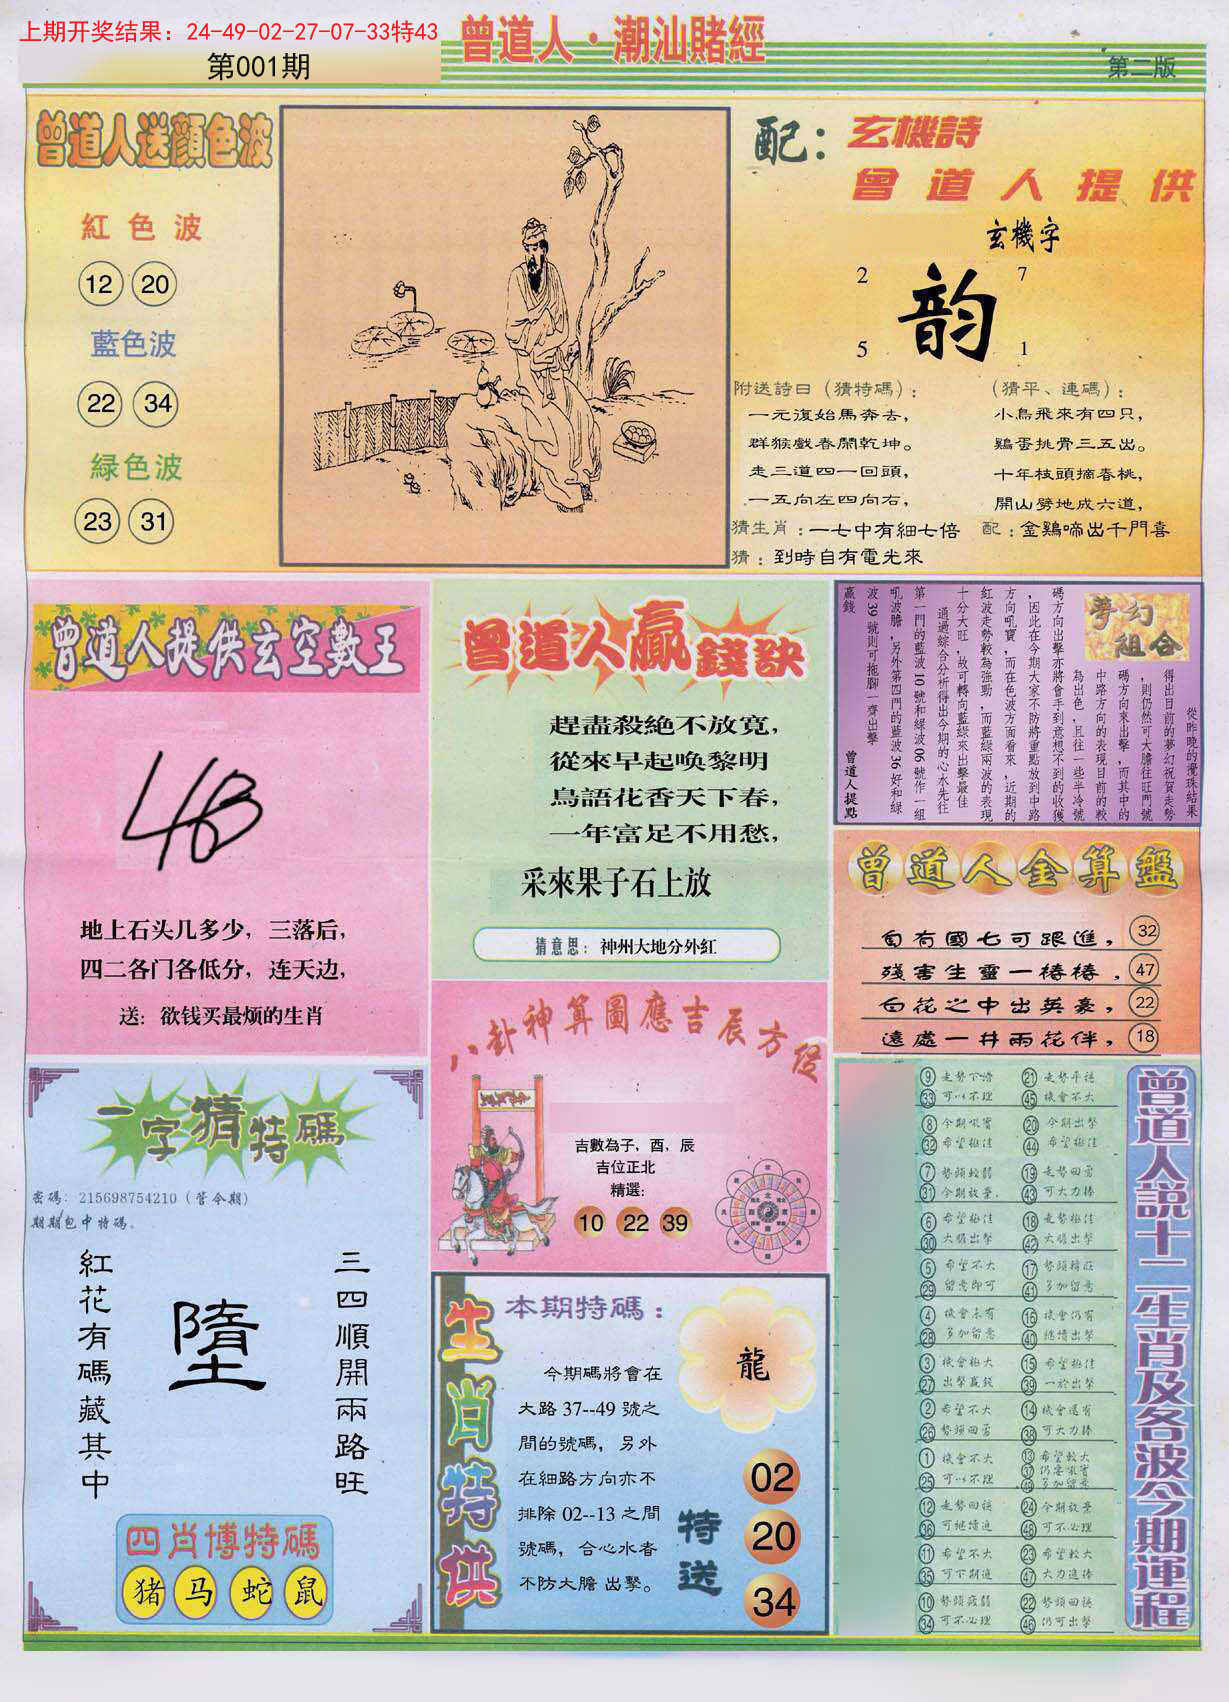 上期开奖结果：24-49-02-27-07-33特43
第001期
曾道人·潮汕賭經
第二版
曾道人送顏色波
紅色波
12 20
藍色波
22 34
緑色波
23 31
配：玄機詩
曾道人提供
玄機字
2 7
韵
5 1
附送詩日（猜特碼）：
一元復始馬奔去，
群猴戲春鬧乾坤。
走三道四一回頭，
一五向左四向右，
猜生肖：一七中有細七倍
猜：到時自有電光來
（猜平、連碼）：
小鳥飛來有四只，
鷄蛋挑骨三五出。
十年枝頭摘春桃，
開山劈地成六道，
配：金鷄啼出千門喜
曾道人提供玄空數王
地上石头几多少，三落后，
四二各门各低分，连天边，
送：欲钱买最烦的生肖
曾道人贏錢訣
趕盡殺絶不放寬，
從來早起唤黎明
鳥語花香天下春，
一年富足不用愁，
采來果子石上放
猜意思：神州大地分外紅
夢幻組合
從昨晚的攪珠結果
得出目前的夢幻祝賀走勢
，則仍然可大膽往旺門號
碼方向來出擊，而其中的
中路方向的表現目前的較
為出色，且往一些半冷號
碼方向出擊亦將會手到意想不到的收獲
，因此在今期大家不防將重點放到中路
方向吼寶，而在色波方面看來，近期的
紅波走勢較為強勁，而藍綠兩波的表現
十分大旺，故可轉向藍綠來出擊最佳
通過綜合分析得出今期的心水先往
第一門的藍波10號和綠波06號作一組
吼波膽，另外第四門的藍波36好和綠
波39號則可拖腳一齊出擊
贏錢
曾道人提點
曾道人金算盤
自有國七可跟進，32
殘害生靈一樁樁，47
白花之中出英豪，22
遠處一井兩花伴，18
一字猜特碼
密碼：215698754210（管今期）
期期包中特碼。
紅花有碼藏其中
墮
三四順開兩路旺
四肖博特碼
猪 马 蛇 鼠
八卦神算圖應吉辰方位
吉數為子，酉，辰
吉位正北
精選：
10 22 39
生肖特供
本期特碼：
今期碼將會在
大路37--49號之
間的號碼，另外
在細路方向亦不
排除02--13之間
號碼，合心水者
不防大膽出擊。
龍
特送
02
20
34
曾道人説十二生肖及各波今期運程
9 走勢下滑 21 走勢平穩
33 可以不理 45 機會不大
8 今期吼寶 20 今期出擊
32 希望極佳 44 希望極佳
7 勢頭較弱 19 走勢回勇
31 今期放棄. 43 可大力捧
6 希望極佳 18 走勢極佳
30 大膽出擊 42 大膽出擊
5 希望不大 17
29 留意即可 41 多加留意
4 機會未有 16 機會仍有
28 多加留意 40 繼續出擊
3 機會極大 15 希望極佳
27 出擊贏錢 39 一於出擊
2 希望不大 14 機會還有
26 勢頭回勇 38 可大力捧
1 機會不大 13 希望較大
37 仍要吼寶
25 可以不理 49 多加留意
12 走勢回穩 24 今期放棄
36 可繼續追 48 可不必理
11 希望不大 23 希望較大
35 可下期追 47 大力追捧
10 勢頭疲弱 22 勢頭回穩
34 可不必理 46 仍可出擊